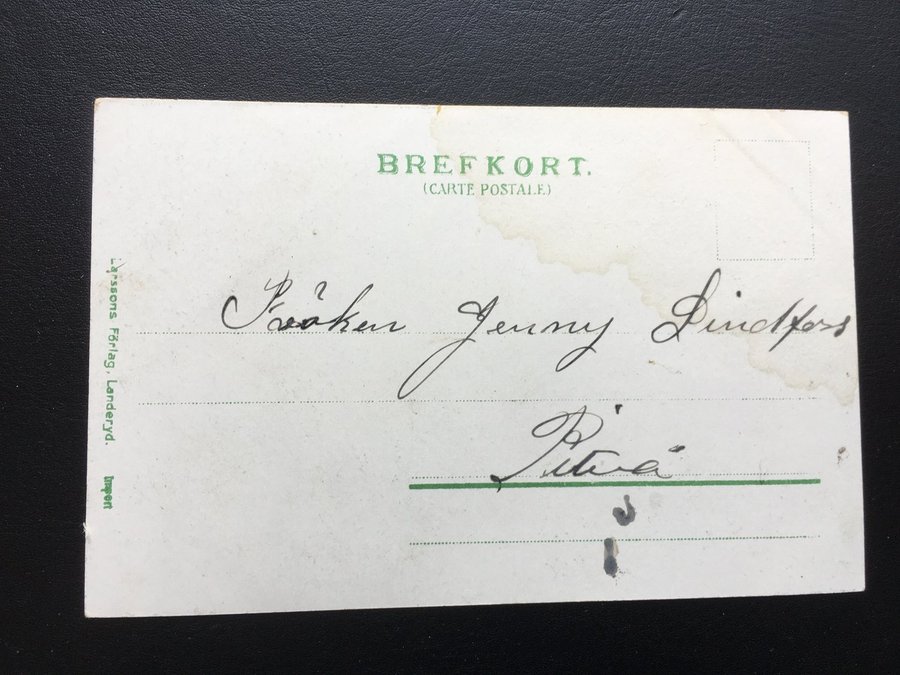 BREFKORT.
(CARTE POSTALE)
Fröken Jenny Lindfors
Piteå
Larssons Förlag, Landeryd. Import